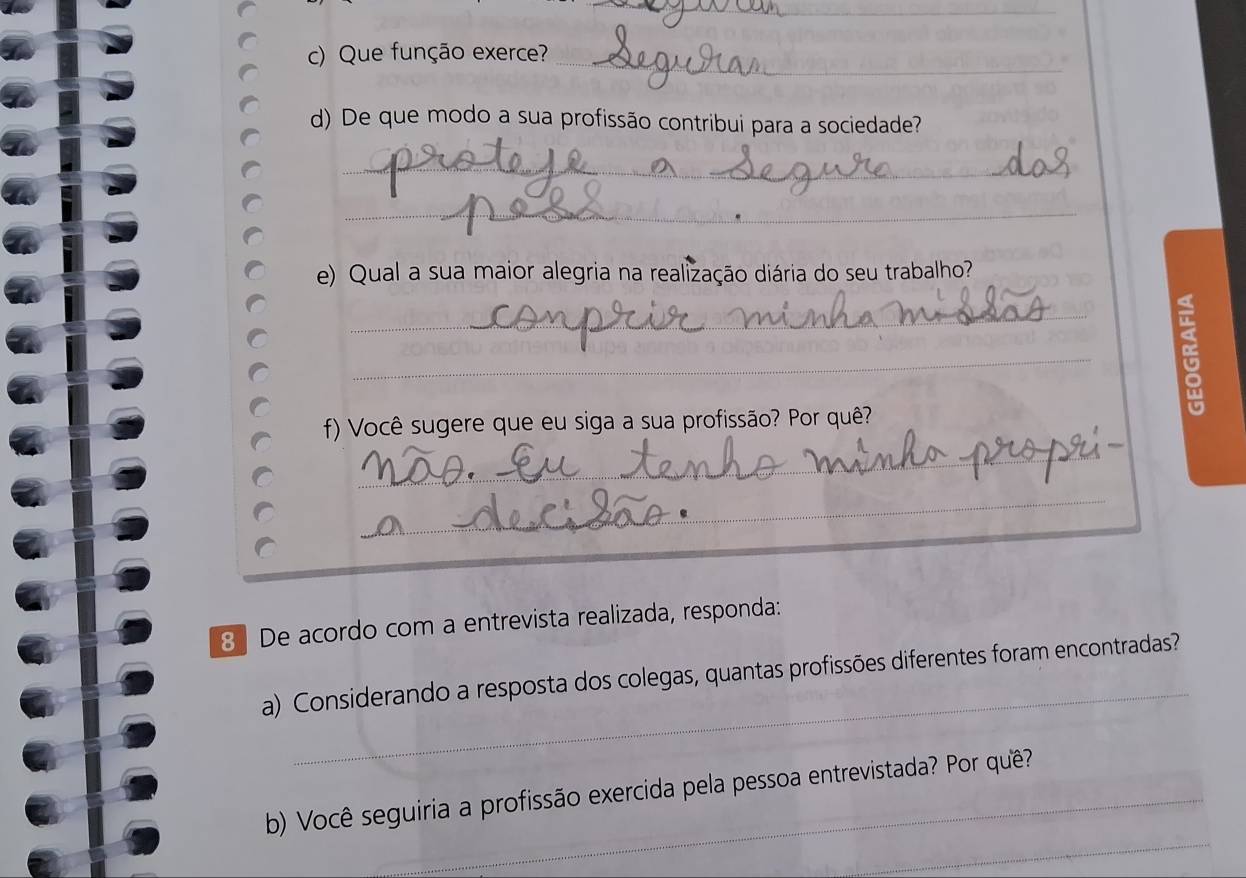 c) Que função exerce? Seguran
d) De que modo a sua profissão contribui para a sociedade?
proteje a segura das
pess .
e) Qual a sua maior alegria na realização diária do seu trabalho?
conprir minha missão
f) Você sugere que eu siga a sua profissão? Por quê?
não. Eu tenho minha propri-
a decisão.
8 De acordo com a entrevista realizada, responda:
a) Considerando a resposta dos colegas, quantas profissões diferentes foram encontradas?
b) Você seguiria a profissão exercida pela pessoa entrevistada? Por quê?
GEOGRAFIA